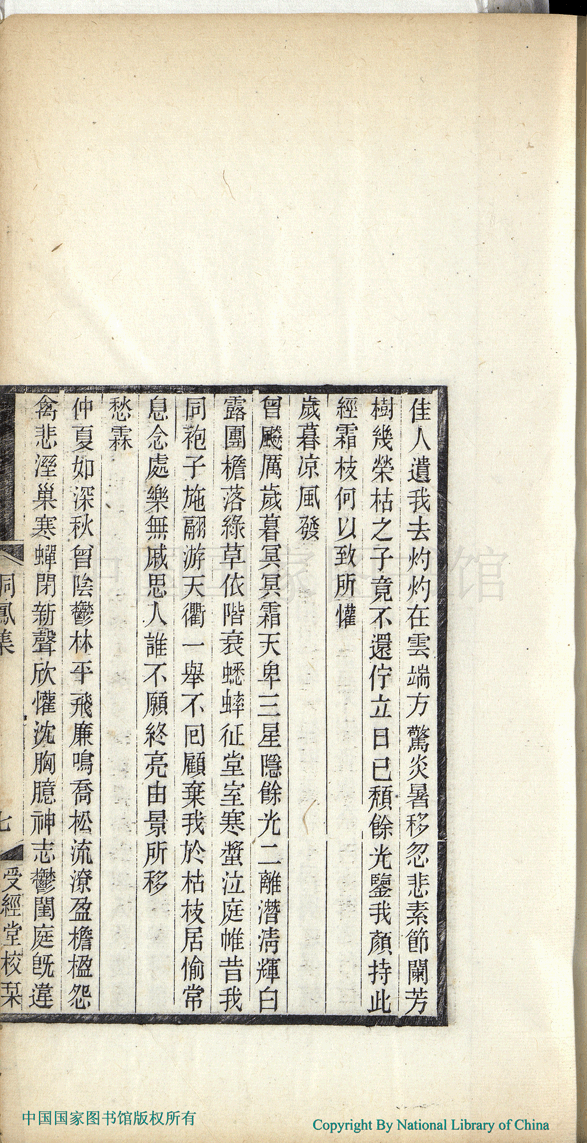 佳人遺我去灼灼在雲端方驚炎暑移忽悲素節闌芳
樹幾榮枯之子竟不還佇立日已頹餘光鑒我顏持此
經霜枝何以致所懽
歲暮凉風發
曾飈厲歲暮冥冥霜天卑三星隱餘光二離潛淸輝白
露團檐落綠草依階衰蟋蟀征堂室寒螿泣庭帷昔我
同袍子施翮游天衢一舉不回顧棄我於枯枝居偷常
息念處樂無戚思人誰不願終亮由景所移
愁霖
仲夏如深秋曾陰鬱林平飛廉鳴喬松流潦盈檐楹怨
禽悲溼巢寒蟬閉新聲欣懽沈胸臆神志鬱閨庭旣違
桐鳳集
七
受經堂校栞
中国国家图书馆
中国国家图书馆版权所有
Copyright By National Library of China